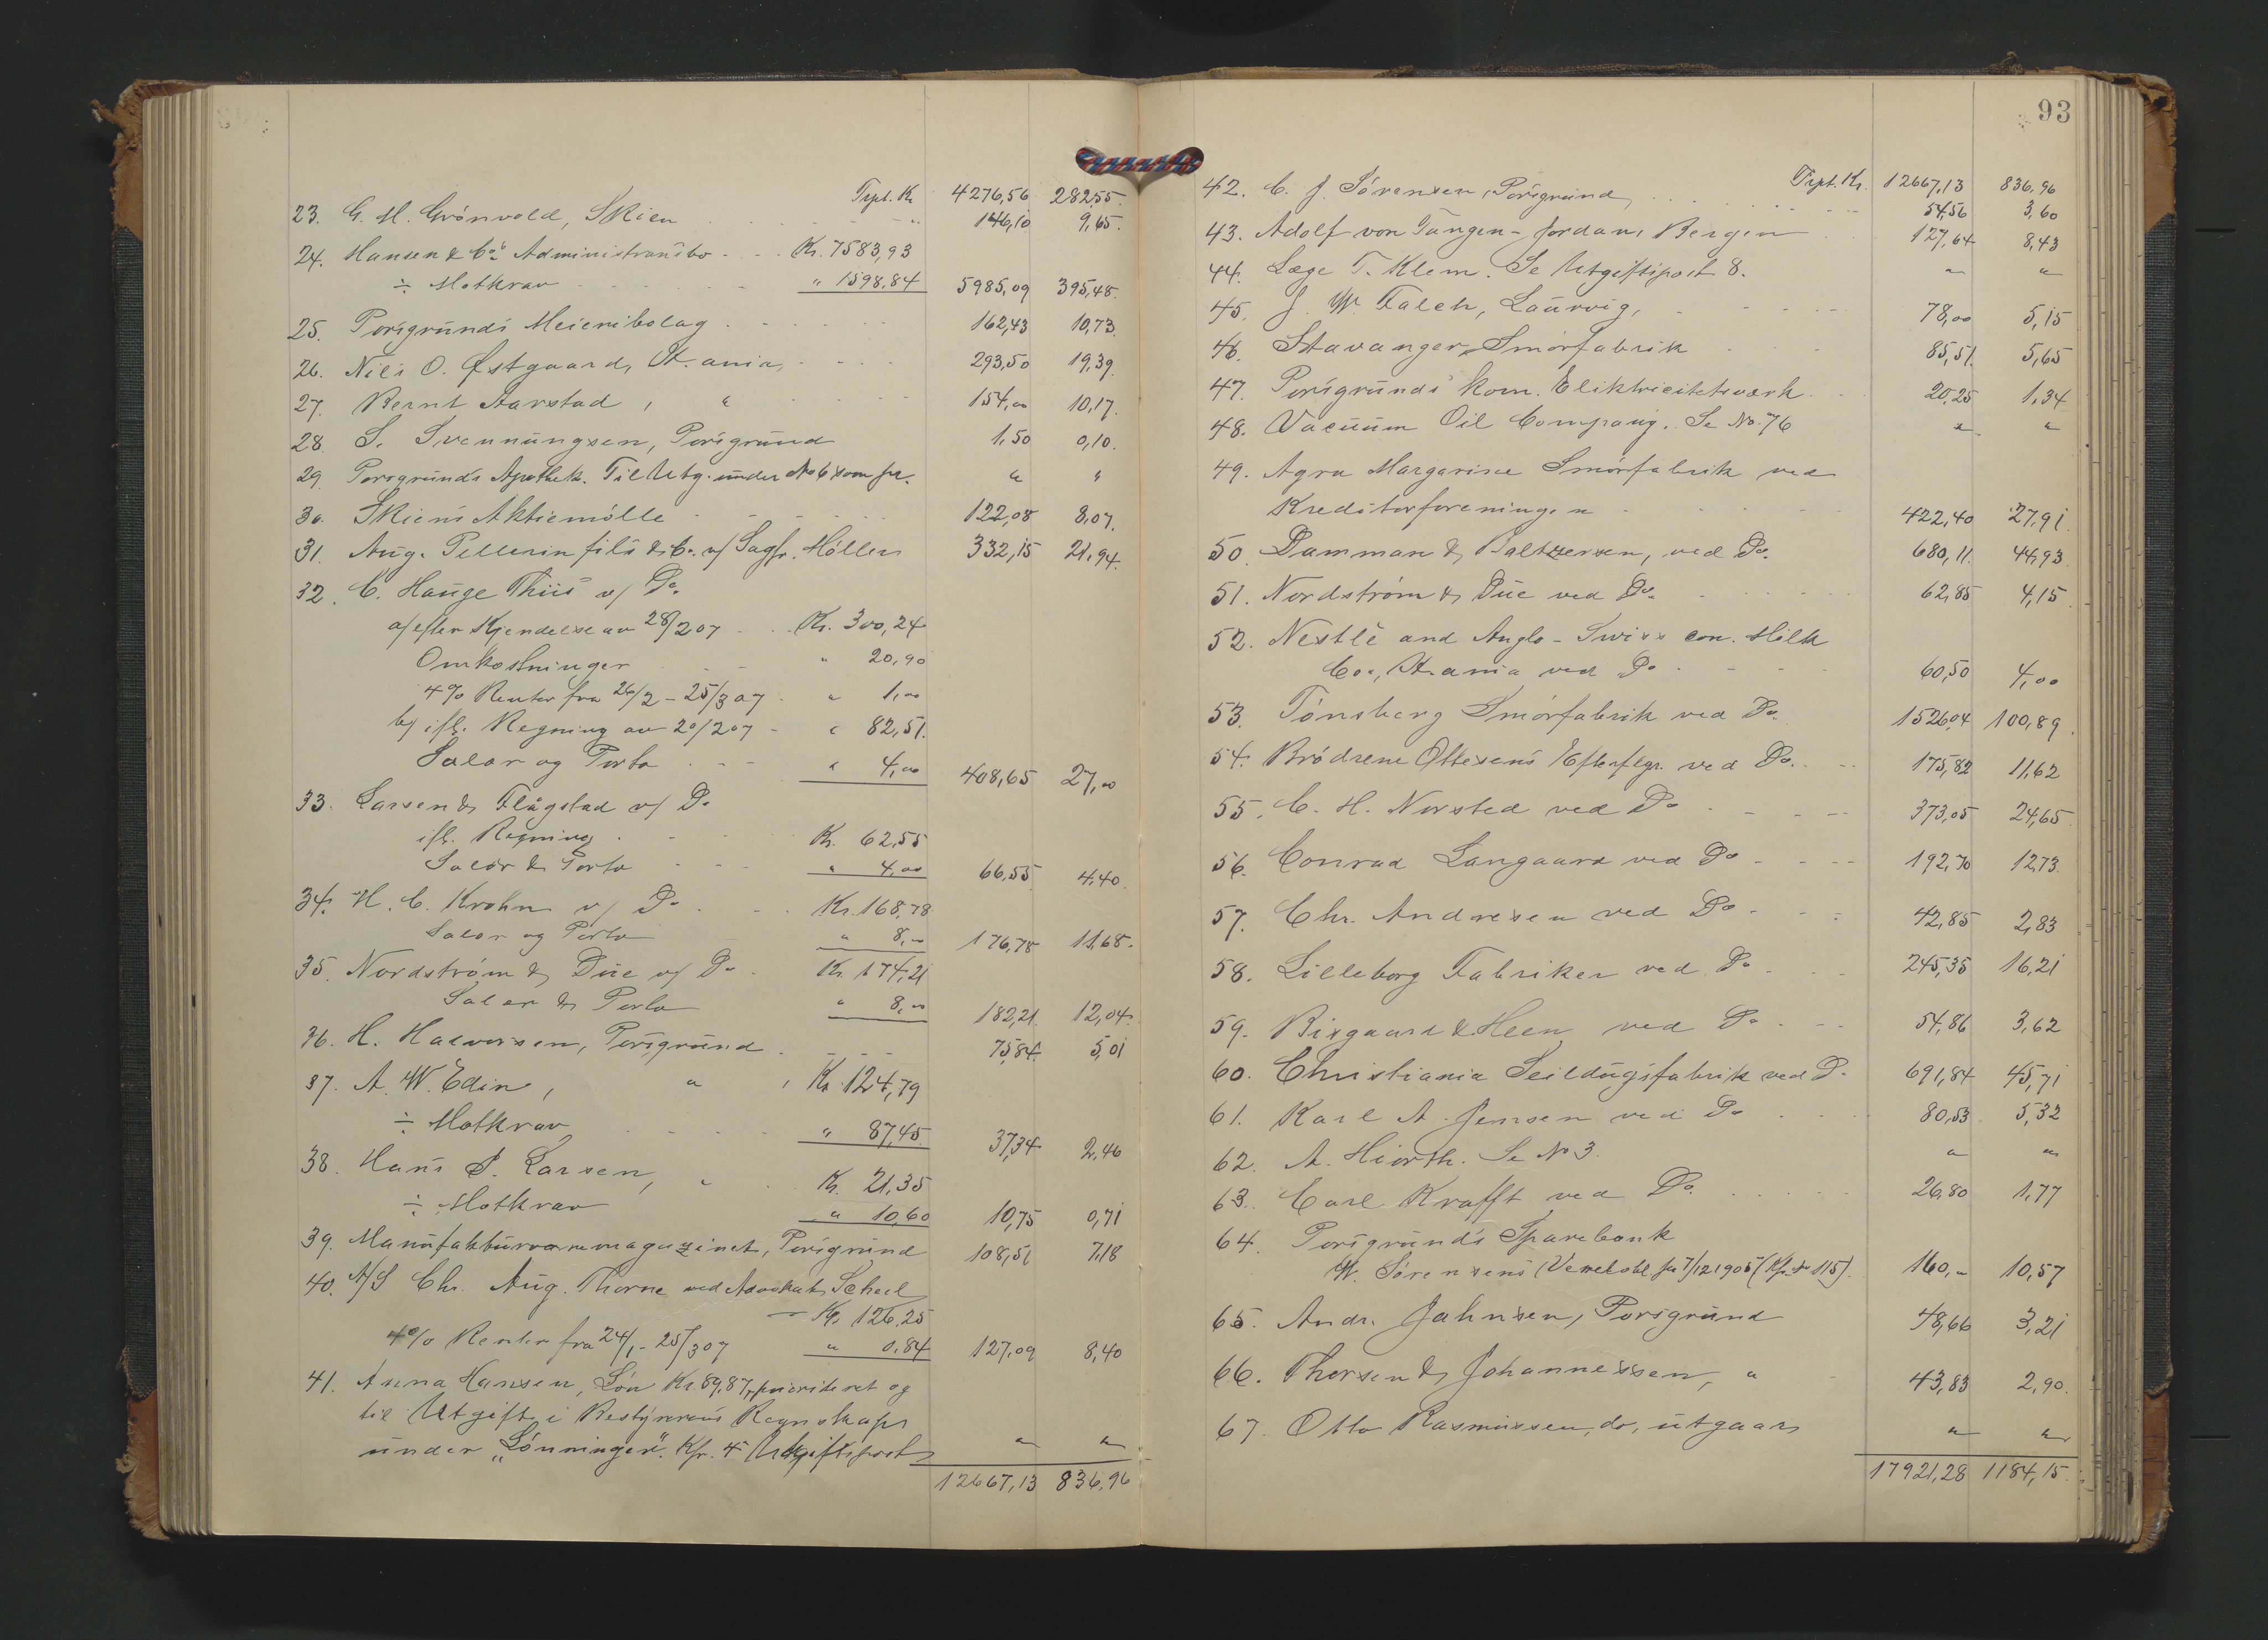 Trpt. Kr. 4276,56 282,55.
23. G. M. Grönvold, Skien " 146,10 9,65.
24. Hansen & Co's Administransbo Kr. 7583,93
÷ Motkrav " 1598,84 5985,09 395,48.
25. Porsgrunds Meieribolag 162,43 10,73.
26. Nils O. Østgaard, Kr.ania, 293,50 19,39.
27. Bernt Aarstad, " 154,00 10,17.
28. S. Svennungsen, Porsgrund 1,50 0,10.
29. Porsgrunds Apothek. Til Utg. under No 6 som pr. " "
30. Skiens Aktiemölle 122,08 8,07.
31. Aug. Pellerin fils & Co. v/ Sagfr. Möller 332,15 21,94.
32. C. Hauge Thiis v/ Do.
a/ efter Kjendelse av 28/2 07 Kr. 300,24
Omkostninger " 20,90
4% Renter fra 26/2 - 25/3 07 " 1,00
b/ ifl. Regning av 20/2 07 - " 82,51.
Salær og Porto " 4,00 408,65 27,00
33. Larsen & Flugstad v/ Do
ifl. Regning Kr. 62,55
Salær & Porto " 4,00 66,55 4,40.
34. H. C. Krohn v/ Do Kr. 168,78
Salær og Porto " 8,00 176,78 11,68.
35. Nordström & Due v/ Do Kr. 174,21
Salær & Porto " 8,00 182,21. 12,04.
36. H. Halvorsen, Porsgrund 75,84. 5,01
37. A. W. Edin, " , Kr. 124,79
÷ Motkrav " 87,45. 37,34 2,46
38. Hans P. Larsen, " Kr. 21,35
÷ Motkrav " 10,60 10,75 0,71
39. Manufakturvaremagazinet, Porsgrund 108,51 7,18
40. A/S Chr. Aug. Thorne ved Advokat Scheel
Kr. 126,25
4% Renter fra 24/1 - 25/3 07 " 0,84 127,09 8,40
41. Anna Hansen, Lön Kr. 89,87, prioriteret og
til Utgift i Bestyrerens Regnskaps
under "Lönninger". Kfr. 4 Utgiftspost " "
12667,13 836,96
93
Trpt. Kr. 12667,13 836,96
42. C. J. Sörensen, Porsgrund, 54,56 3,60
43. Adolf von Tangen-Jordan, Bergen 127,64 8,43
44. Læge T. Klem. Se Utgiftspost 8. " "
45. J. W. Falch, Laurvig, 78,00 5,15
46. Stavanger Smörfabrik 85,51. 5,65
47. Porsgrunds kom. Eliktricitetsværk 20,25 1,34
48. Vacuum Oil Company. Se No. 76 " "
49. Agra Margarine Smörfabrik ved
Kreditorforeningen 422,40 27,91.
50. Damman & Baltzersen, ved Do. 680,11. 44,93.
51. Nordström & Due ved Do. 62,85 4,15
52. Nestlè and Anglo-Swiss con. Milk
Co., Kr.ania ved Do 60,50 4,00
53. Tönsberg Smörfabrik ved Do. 1526,04 100,89.
54. Brödrene Ottesens Efterflgr. ved Do. 175,82 11,62
55. C. H. Norsted ved Do 373,05 24,65
56. Conrad Langaard ved Do 192,70 12,73.
57. Chr. Andresen ved Do 42,85 2,83
58. Lilleborg Fabriker ved Do 245,35 16,21
59. Bisgaard & Heen ved Do 54,86 3,62
60. Christiania Seildugsfabrik ved Do 691,84 45,71
61. Karl A. Jensen ved Do 80,53 5,32
62. A. Hiorth. Se No 3. " "
63. Carl Krafft ved Do. 26,80 1,77
64. Porsgrunds Sparebank
W. Sörensens (Vexelobl. pr 7/12 1906 (Kfr. No 115). 160,00 10,57
65. Andr. Jahnsen, Porsgrund 48,66 3,21
66. Thorsen & Johannessen, " 43,83 2,90.
67. Otto Rasmussen, do, utgaar " "
17921,28 1184,15.